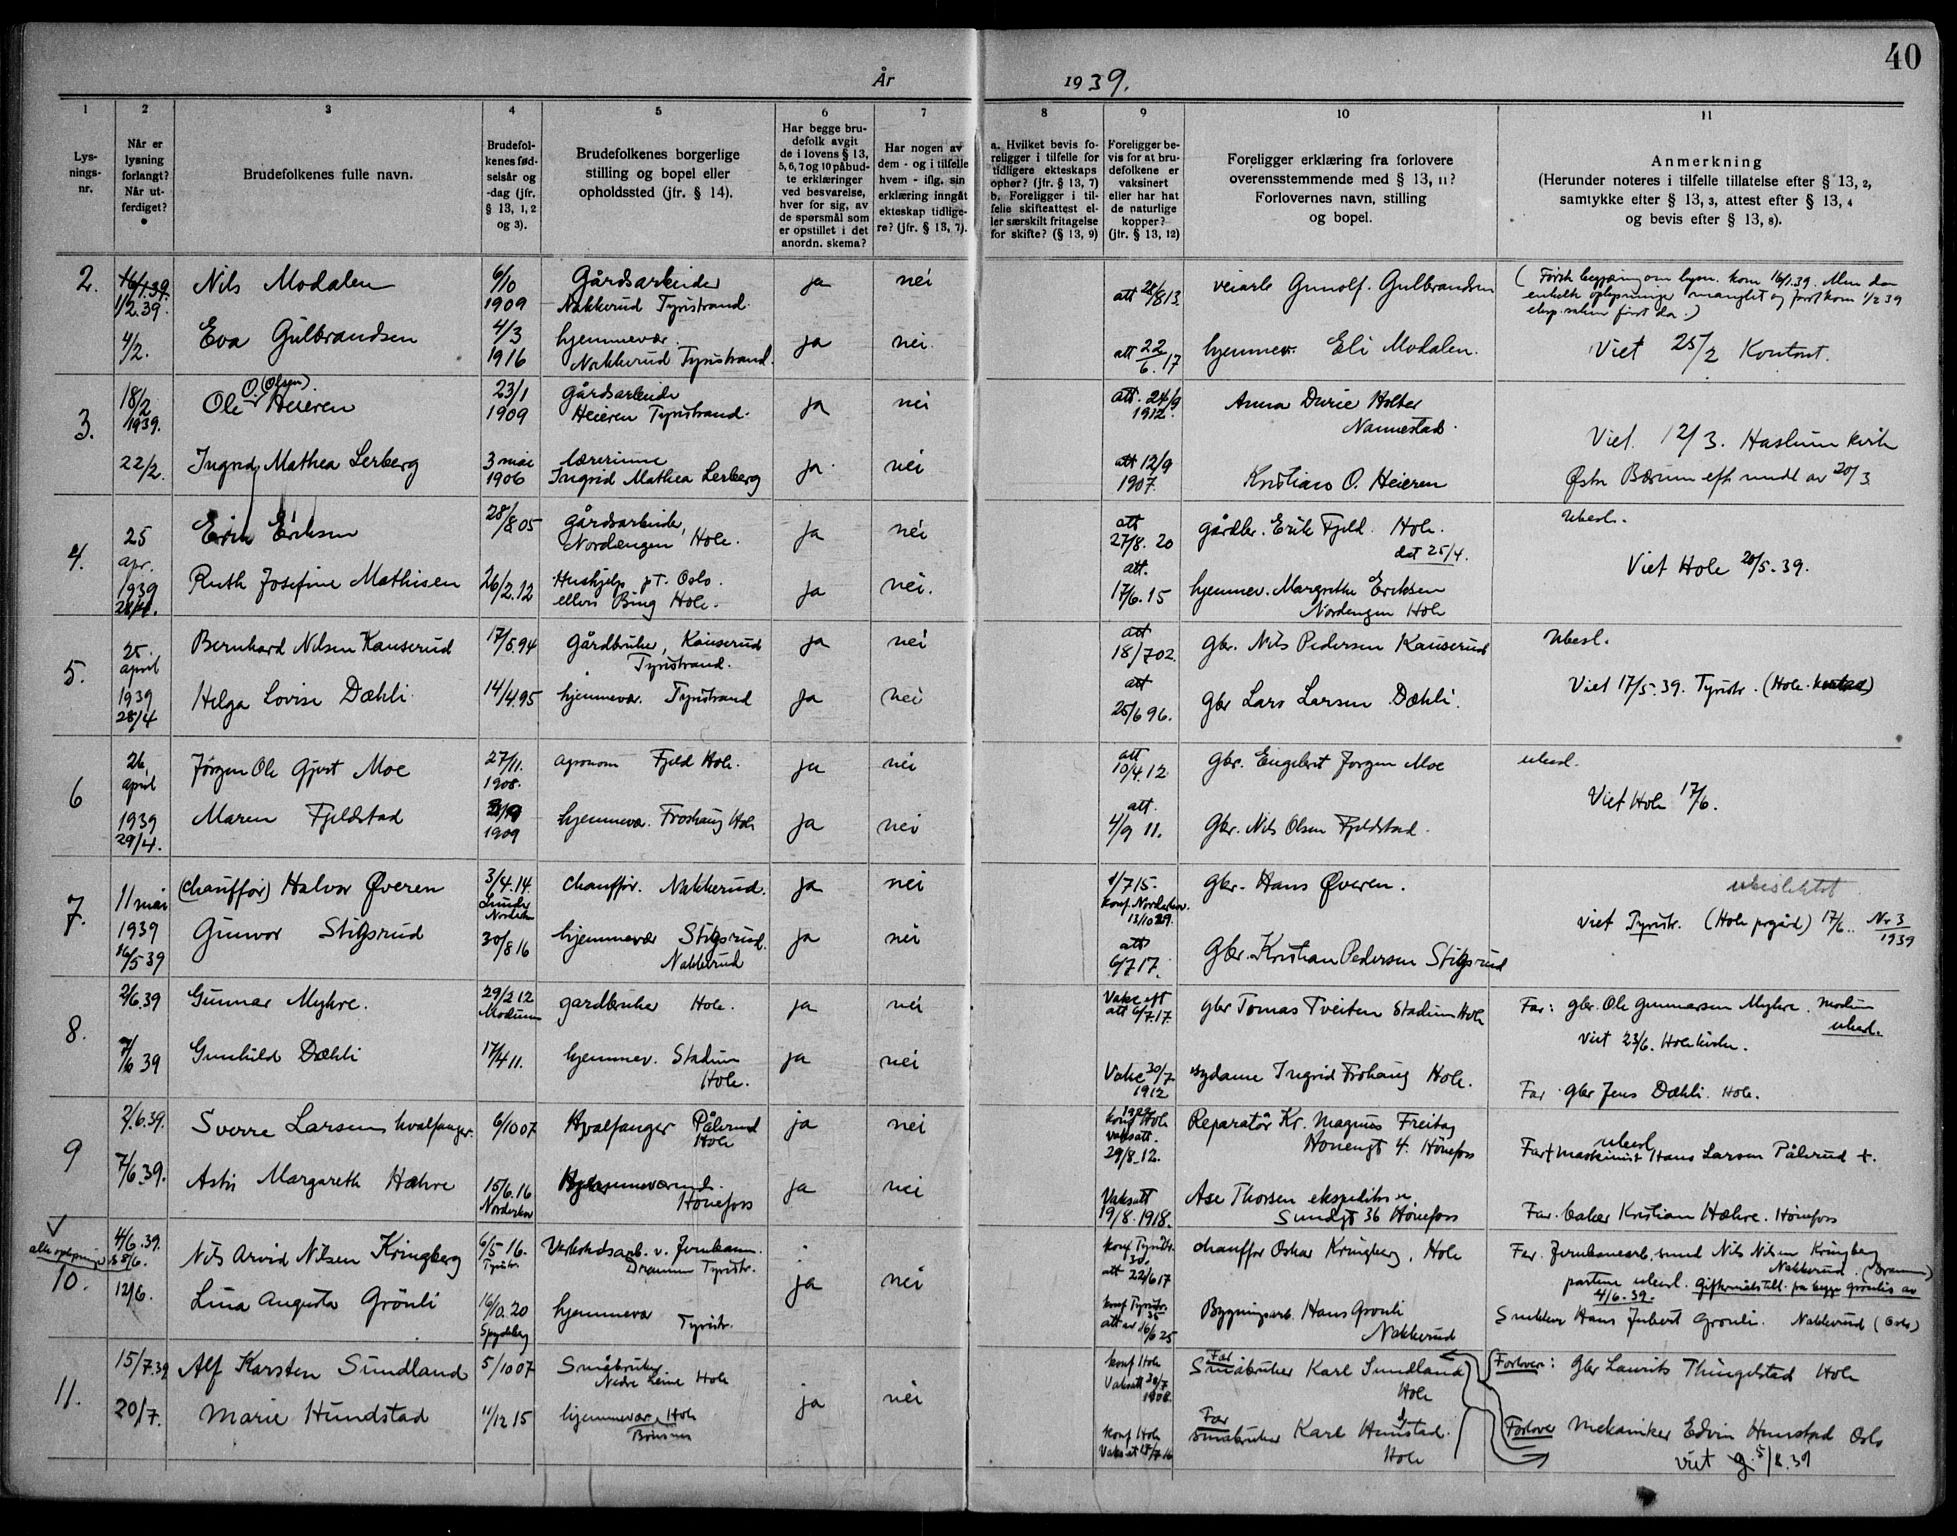 40
År 1939.
1 2 3 4 5 6 7 8 9 10 11
Lys-
nings-
nr.
Når er
lysning
forlangt?
Når ut-
ferdiget?
Brudefolkenes fulle navn.
Brudefol-
kenes fød-
selsår og
-dag (jfr.
§ 13, 1, 2
og 3).
Brudefolkenes borgerlige
stilling og bopel eller
opholdssted (jfr. § 14).
Har begge bru-
defolk avgit
de i lovens § 13,
5, 6, 7 og 10 påbud-
te erklæringer
ved besvarelse,
hver for sig, av
de spørsmål som
er opstillet i det
anordn. skema?
Har nogen av
dem - og i tilfelle
hvem - iflg. sin
erklæring inngåt
ekteskap tidlige-
re? (jfr. § 13, 7).
a. Hvilket bevis fo-
religger i tilfelle for
tidligere ekteskaps
ophør? (jfr. § 13, 7)
b. Foreligger i til-
felle skifteattest el-
ler særskilt fritagelse
for skifte? (§ 13, 9)
Foreligger be-
vis for at bru-
defolkene er
vaksinert
eller har hat
de naturlige
kopper?
(jfr. § 13, 12)
Foreligger erklæring fra forlovere
overensstemmende med § 13, 11?
Forlovernes navn, stilling
og bopel.
Anmerkning
(Herunder noteres i tilfelle tillatelse efter § 13, 2,
samtykke efter § 13, 3, attest efter § 13, 4
og bevis efter § 13, 8).
2. 16/1.39. Nils Modalen 6/10 Gårdsarbeider ja nei att 28/8 13 veiarb Gunolf Gulbrandsen
1/2.39. 1909 Nakkerud Tyristrand
(Første begjæring om lysn. kom 16/1.39. Men da
enkelte oplysninger manglet og først kom 1/2 39
eksp. saken først da.)
4/2. Eva Gulbrandsen 4/3 hjemmevær. ja nei. att 22/6.17 hjemmev. Eli Modalen. Viet 25/2 Kontoret.
1916 Nakkerud Tyristrand.
3. 18/2 1939. Ole O. (Olsen) Heieren 23/1 1909 Gårdsarbeide ja nei att. 24/9 1912. Anna Durie Holter
Heieren Tyristrand. Nannestad.
Viet. 12/3. Haslum kirke
22/2. Ingrid Mathea Lerberg 3 mai 1906 lærerinne ja. nei att 12/9 1907. Kristian O. Heieren
Ingrid Mathea Lerberg Østre Bærum eft. medd. av 20/3
4. 25 apr. 1939 28/4. Erik Eriksen 28/8.05 gårdsarbeider, ja nei att 27/8. 20 gårdbr. Erik Fjeld. Hole. Ubesl.
Nordengen Hole. dat 25/4.
Viet Hole 20/5.39.
Ruth Josefine Mathisen 26/2.12 Hushjelp p.T. Oslo. ja nei. att. 17/6.15 hjemmev. Margrethe Eriksen
ellers Bing Hole. Nordengen Hole
5. 25. april 1939 28/4 Bernhard Nilsen Kauserud 17/5.94 Gårdbruker, Kauserud ja nei att 18/7 02. gbr. Nils Pedersen Kauserud Ubesl.
Tyristrand.
Helga Lovise Dæhli 14/4.95 hjemmevær. Tyristrand ja nei att 25/6 96. Gbr Lars Larsen Dæhli. Viet 17/5.39. Tyristr. (Hole.)
6 26. april 1939 29/4. Jørgen Ole Gjert Moe 27/11. 1908. agronom Fjeld Hole. ja nei att 10/4.12 Gbr. Engebret Jørgen Moe ubesl.
Viet Hole 17/6.
Maren Fjeldstad 1909 hjemmevær. Froshaug Hole ja nei att. 4/9 11. Gbr. Nils Olsen Fjeldstad.
7. 11 mai 1939 16/5 39 (chauffør) Halvor Øveren 3/4.14. Lunder Norderhov chauffør. Nakkerud. ja nei 1/7 15. Gbr. Hans Øveren. ubeslektet
konf. Norderhov. 13/10 29.
viet Tyristr. (Hole prgård) 17/6. Nr 3/1939
Gunvor Stigsrud 30/8 16 hjemmevær Stigsrud. ja nei att 6/7 17. Gbr. Kristian Pedersen Stigsrud
Nakkerud
8. 2/6.39 Gunnar Myhre. 29/2 12 Modum gardbruker Hole. ja nei Vaks eft att 6/7.17. gbr Tomas Tveiten Stadum Hole Far: gbr. Ole Gunnarsen Myhre. Modum
ubesl.
viet 23/6. Hole kirke.
7/6 39 Gunhild Dæhli 17/4 11. hjemmev. Stadum ja nei Vaks 30/7 1912 sydame Ingrid Frøhaug Hole. Far. gbr Jens Dæhli. Hole.
Hole.
9 2/6.39. Sverre Larsen hvalfanger. 6/10 07 Hvalfanger Pålsrud ja nei konf Hole 1922 vaksatt. 29/8.12. Reparatør Kr. Magnus Freitag
Hole Hønengt 4. Hønefoss ubesl
Far + maskinist Hans Larsen Pålsrud +.
7/6.39. Astri Margareth Hæhre 15/6.16 Norderhov Hjemmeværend. ja nei Vaksatt 19/8.1918. Åse Thorsen ekspeditrise
Hønefoss Sundgt 36 Hønefoss Far. baker Kristian Hæhre. Hønefoss
10. 4/6.39. Nils Arvid Nilsen Kringberg 6/5 16. Tyristr. Verkstedsarb. v. Jernbanen. konf Tyristr. 30. att 22/6 17 chauffør Oskar Kringberg, Hole Far. Jernbanearb. smed Nils Nilsen Kringberg
8/6. Drammen Tyristr. Nakkerud. (Dramm)
ja nei partene ubesl. Giftermålstill. fra begge Grønlis av
4/6.39.
12/6. Lina Augusta Grönli 16/10.20 Spydeberg hjemmevær konf Tyristr. 35 att av 16/6 25 Bygningsarb. Hans Grønli Snekker Hans Jubert Grønli. Nakkerud (Oslo)
Tyristr. Nakkerud
11. 15/7.39 Alf Karsten Sundland 5/10 07 Småbruker konf Hole Far Småbruker Karl Sundland Forlover: Gbr Laurits Thingelstad Hole
Nedre Leine Hole ja nei Vaksatt 30/7 1908. Hole
20/7. Marie Hundstad 11/12 15 hjemmevær Hole konf Hole Far småbruker Karl Hunstad. Forlover Mekaniker Edvin Hunstad Oslo
Bönsnes Vaksatt 18/7 16 Hole viet 5/8.39